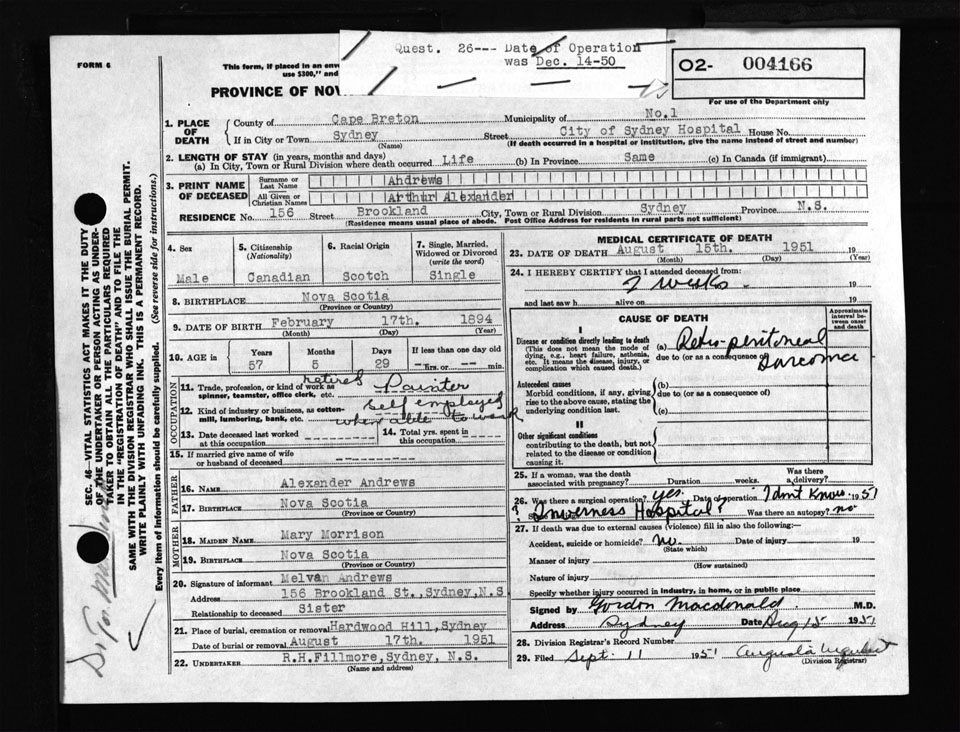 Quest. 26--- Date of Operation
was Dec. 14-50
FORM 6
This form, if placed in an env
use $300," and
PROVINCE OF NOV
O2- 004166
For use of the Department only
1. PLACE OF DEATH
County of Cape Breton Municipality of No.1
If in City or Town Sydney Street City of Sydney Hospital House No.
(Name) (If death occurred in a hospital or institution, give the name instead of street and number)
2. LENGTH OF STAY (in years, months and days)
(a) In City, Town or Rural Division where death occurred Life (b) In Province Same (c) In Canada (if immigrant)
3. PRINT NAME OF DECEASED
Surname or Last Name Andrews
All Given or Christian Names Arthur Alexander
RESIDENCE No. 156 Street Brookland City, Town or Rural Division Sydney Province N.S.
(Residence means usual place of abode. Post Office Address for residents in rural parts not sufficient)
4. Sex Male
5. Citizenship (Nationality) Canadian
6. Racial Origin Scotch
7. Single, Married, Widowed or Divorced (write the word) Single
8. BIRTHPLACE Nova Scotia
(Province or Country)
9. DATE OF BIRTH February 17th. 1894
(Month) (Day) (Year)
10. AGE in Years 57 Months 5 Days 29 If less than one day
hrs. or min.
OCCUPATION
11. Trade, profession, or kind of work as spinner, teamster, office clerk, etc. retired Painter
12. Kind of industry or business, as cotton-mill, lumbering, bank, etc. self employed when able to work
13. Date deceased last worked at this occupation
14. Total yrs. spent in this occupation
15. If married give name of wife or husband of deceased
FATHER
16. NAME Alexander Andrews
17. BIRTHPLACE Nova Scotia
(Province or Country)
MOTHER
18. MAIDEN NAME Mary Morrison
19. BIRTHPLACE Nova Scotia
(Province or Country)
20. Signature of informant Melvan Andrews
Address 156 Brookland St.,Sydney,N.S.
Relationship to deceased Sister
21. Place of burial, cremation or removal Hardwood Hill, Sydney
Date of burial or removal August 17th. 1951
22. UNDERTAKER R.H.Fillmore,Sydney, N.S.
(Name and address)
MEDICAL CERTIFICATE OF DEATH
23. DATE OF DEATH August 15th. 1951 19
(Month) (Day) (Year)
24. I HEREBY CERTIFY that I attended deceased from:
2 weeks. 19
and last saw h alive on 19
CAUSE OF DEATH
Approximate interval between onset and death
I
Disease or condition directly leading to death
(This does not mean the mode of dying, e.g., heart failure, asthenia, etc. It means the disease, injury, or complication which caused death.)
(a) Retro-peritoneal
due to (or as a consequence of) Sarcoma
Antecedent causes
Morbid conditions, if any, giving rise to the above cause, stating the underlying condition last.
(b)
due to (or as a consequence of)
(c)
II
Other significant conditions
contributing to the death, but not related to the disease or condition causing it.
25. If a woman, was the death associated with pregnancy? Duration weeks. Was there a delivery?
26. Was there a surgical operation? yes. Date of operation I dmt Know. 1951
? Inverness Hospital? Was there an autopsy? no
27. If death was due to external causes (violence) fill in also the following:—
Accident, suicide or homicide? No. Date of injury 19
(State which)
Manner of injury
(How sustained)
Nature of injury
Specify whether injury occurred in industry, in home, or in public place
Signed by Gordon Macdonald. M.D.
Address Sydney Date Aug 15 1951
28. Division Registrar's Record Number
29. Filed Sept. 11 1951
(Division Registrar)
SEC. 46—VITAL STATISTICS ACT MAKES IT THE DUTY
OF THE UNDERTAKER OR PERSON ACTING AS UNDER-
TAKER TO OBTAIN ALL THE PARTICULARS REQUIRED
IN THE "REGISTRATION OF DEATH" AND TO FILE THE
SAME WITH THE DIVISION REGISTRAR WHO SHALL ISSUE THE BURIAL PERMIT.
WRITE PLAINLY WITH UNFADING INK. THIS IS A PERMANENT RECORD.
Every item of Information should be carefully supplied. (See reverse side for instructions.)